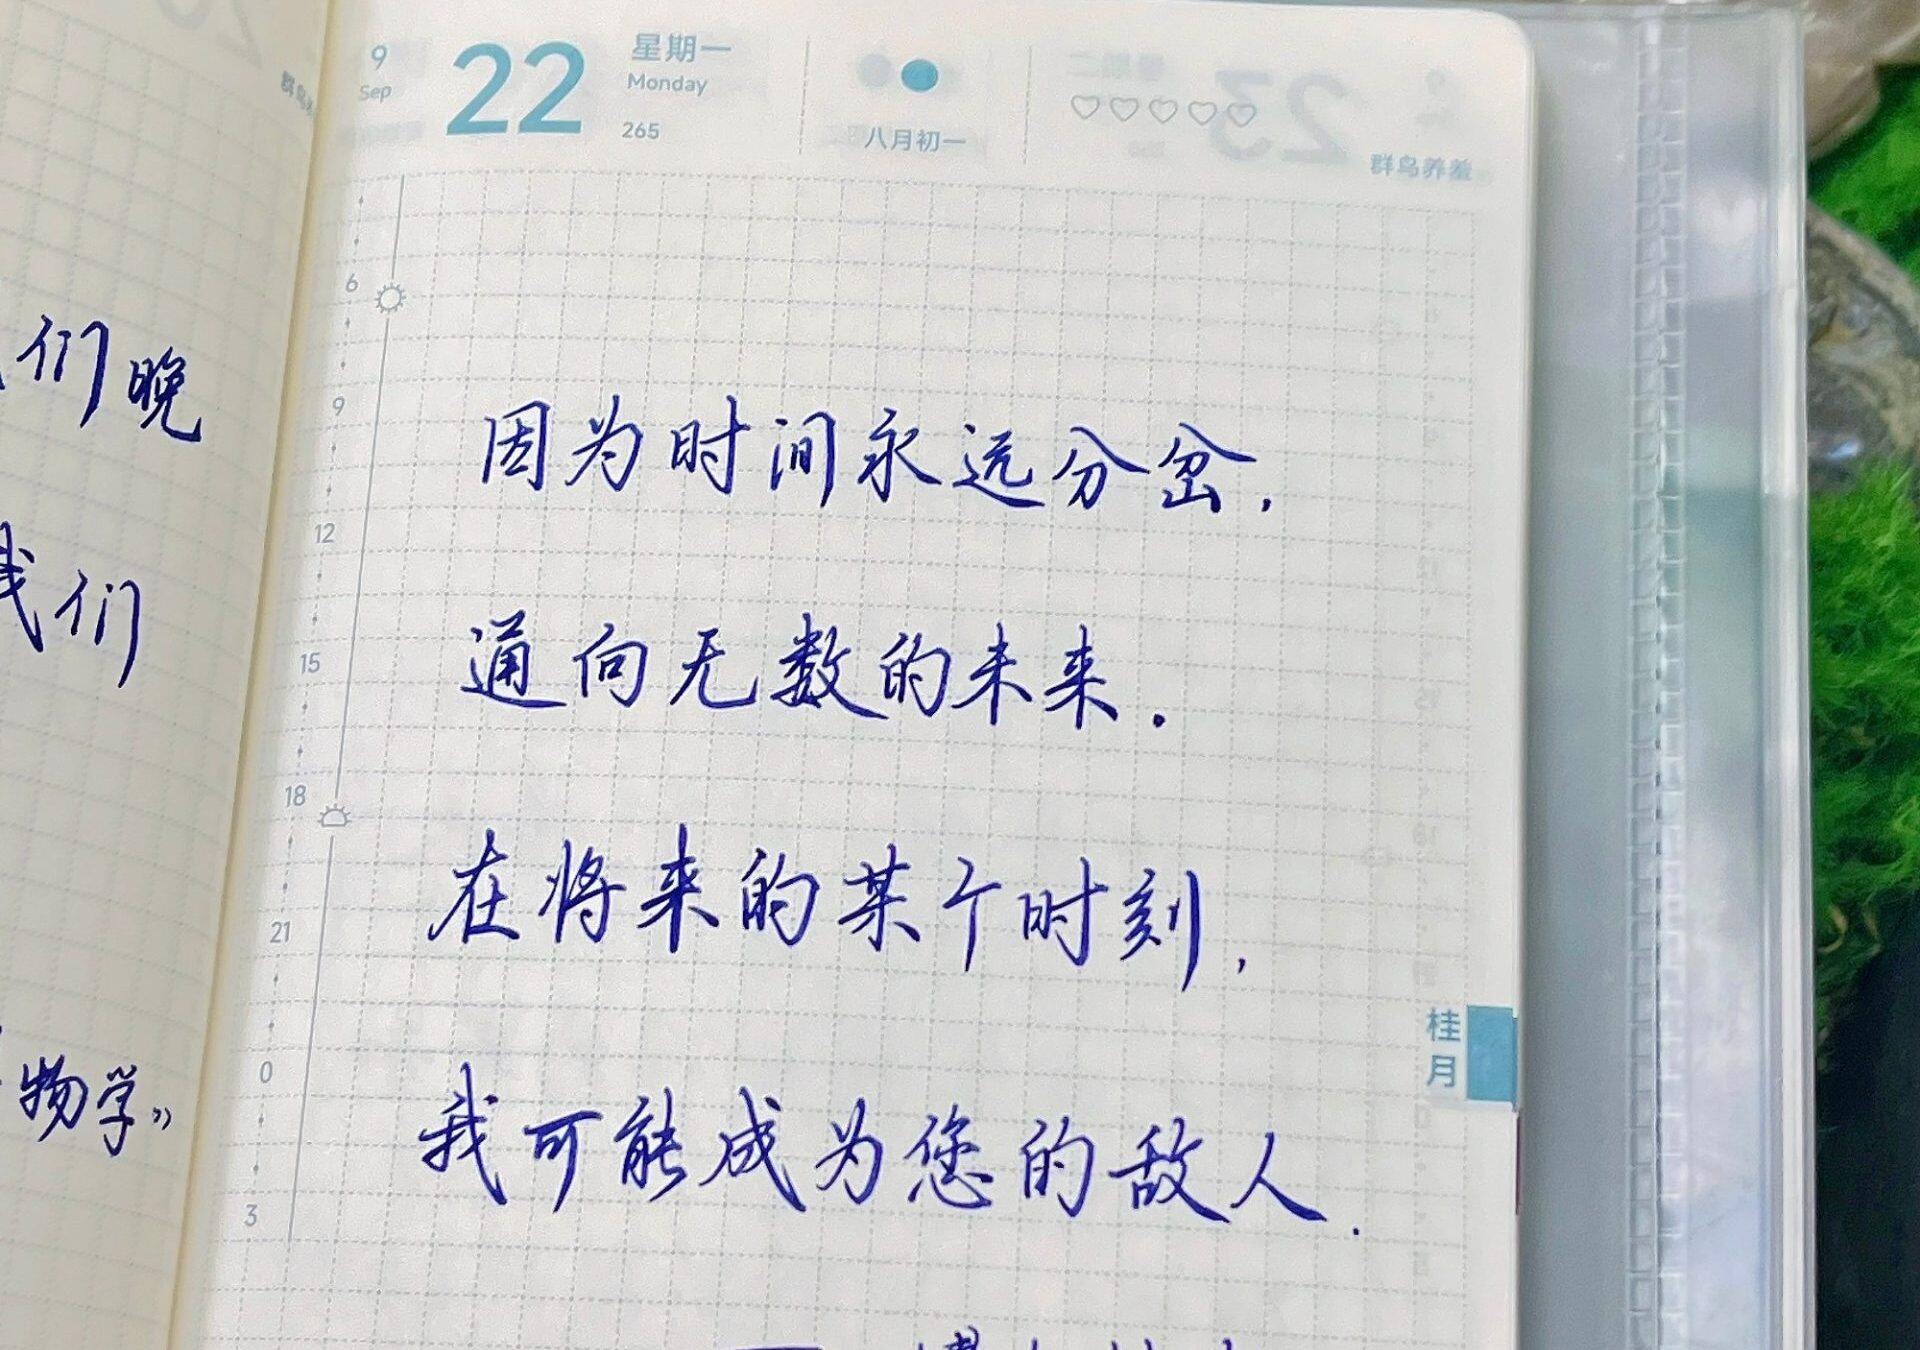 们晚
我们
物学》
9
Sep
22
星期一
Monday
265
八月初一
群鸟养羞
6
9
12
15
18
21
0
3
因为时间永远分岔,
通向无数的未来.
在将来的某个时刻,
我可能成为您的敌人.
桂月